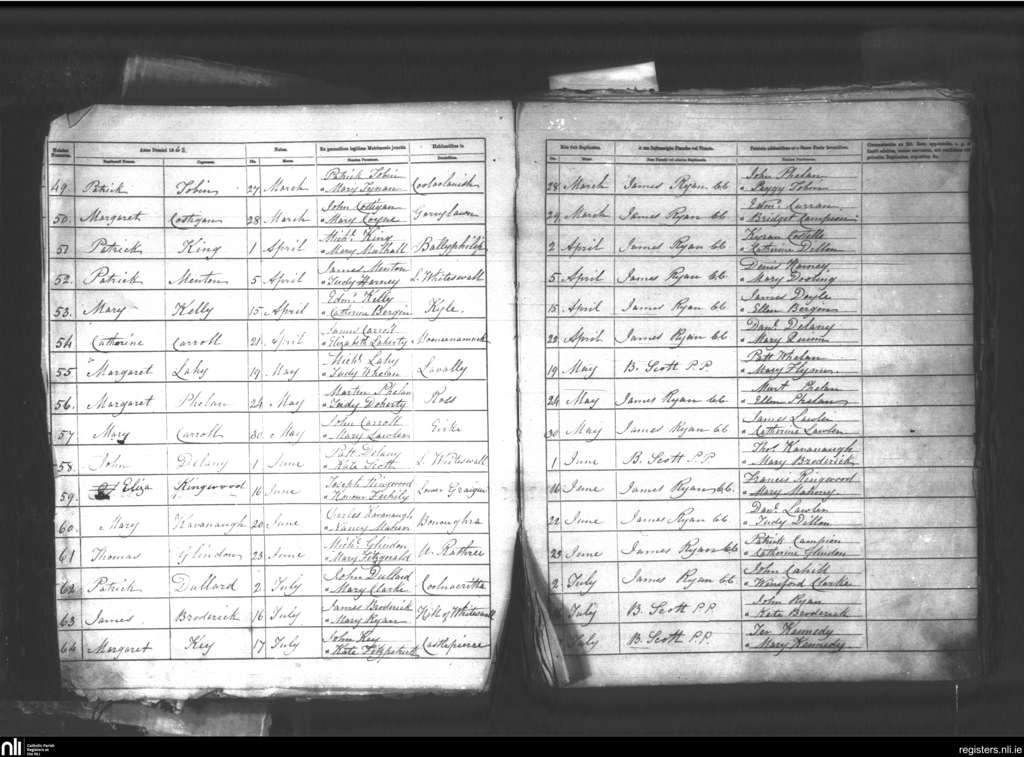 Anno Domini 186
Natus.
Ex parentibus legitimo Matrimonio junctis
Habitantibus in
Baptizati Nomen.
Cognomen.
Die.
Mense.
Nomina Parentum.
Die fuit Baptizatus.
Die.
Mense.
Nomina Patrinorum.
49. Patrick Tobin 27 March Patrick Tobin Coolaclanish 28 March James Ryan CC John Phelan
& Mary Tynan & Peggy Tobin
50. Margaret Costigan 28 March John Costigan Garrylawn 29 March James Ryan CC Edmd. Curran
& Mary Coyne & Bridget Campion
51 Patrick King 1 April Michl. King Ballyphilip 2 April James Ryan CC Kyran Costello
& Mary Marshall & Catherine Dillon
52. Patrick Menton 5 April James Menton L. Whiteswall 5 April James Ryan CC Denis Harney
& Judy Harney & Mary Dooling
53. Mary Kelly 15 April Edmd. Kelly Kyle. 15 April James Ryan CC James Doyle
& Catherine Bergin & Ellen Bergin
54 Catherine Carroll 21 April James Carroll 22 April James Ryan CC Danl. Delany
& Elizabeth Laherty & Mary Quinn
55 Margaret Lahy 19 May Michl. Lahy Lavally 19 May B. Scott P.P. Patt Whelan
& Judy Whelan & Mary Flynn
56. Margaret Phelan 24 May Martin Phelan Ross 24 May James Ryan CC Mart Phelan
& Judy Doherty & Ellen Phelan
57 Mary Carroll 30 May John Carroll Eirke 30 May James Ryan CC James Lawlor
& Mary Lawlor & Catherine Lawlor
58. John Delany 1 June Patt Delany L. Whiteswall 1 June B. Scott P.P. Thos. Kavanaugh
& Kate Scott & Mary Broderick
59. Eliza Kingwood 16 June Joseph Kingwood Lower Graigue 16 June James Ryan CC. Francis Kingwood
& Honour Feehily & Mary Mahony
60. Mary Kavanaugh 20 June Carles Kavanaugh Bononghra 22 June James Ryan CC Danl. Lawlor
& Nancy Maher & Judy Dillon
61 Thomas Glindon 23 June Michl. Glindon U. Rathree 23 June James Ryan CC Patrick Campion
& Mary Fitzgerald & Catherine Glindon
62 Patrick Dullard 2 July John Dullard 2 July James Ryan CC John Cahill
& Mary Clarke & Winiford Clarke
63 James Broderick 16 July James Broderick Hill of Whiteswall July B. Scott P.P. John Ryan
& Mary Ryan & Kate Broderick
64 Margaret Key 17 July John Key Castlepierce July B. Scott P.P. Jer Kennedy
& Kate Fitzpatrick & Mary Kennedy
nli
Catholic Parish
Registers at
the NLI
registers.nli.ie